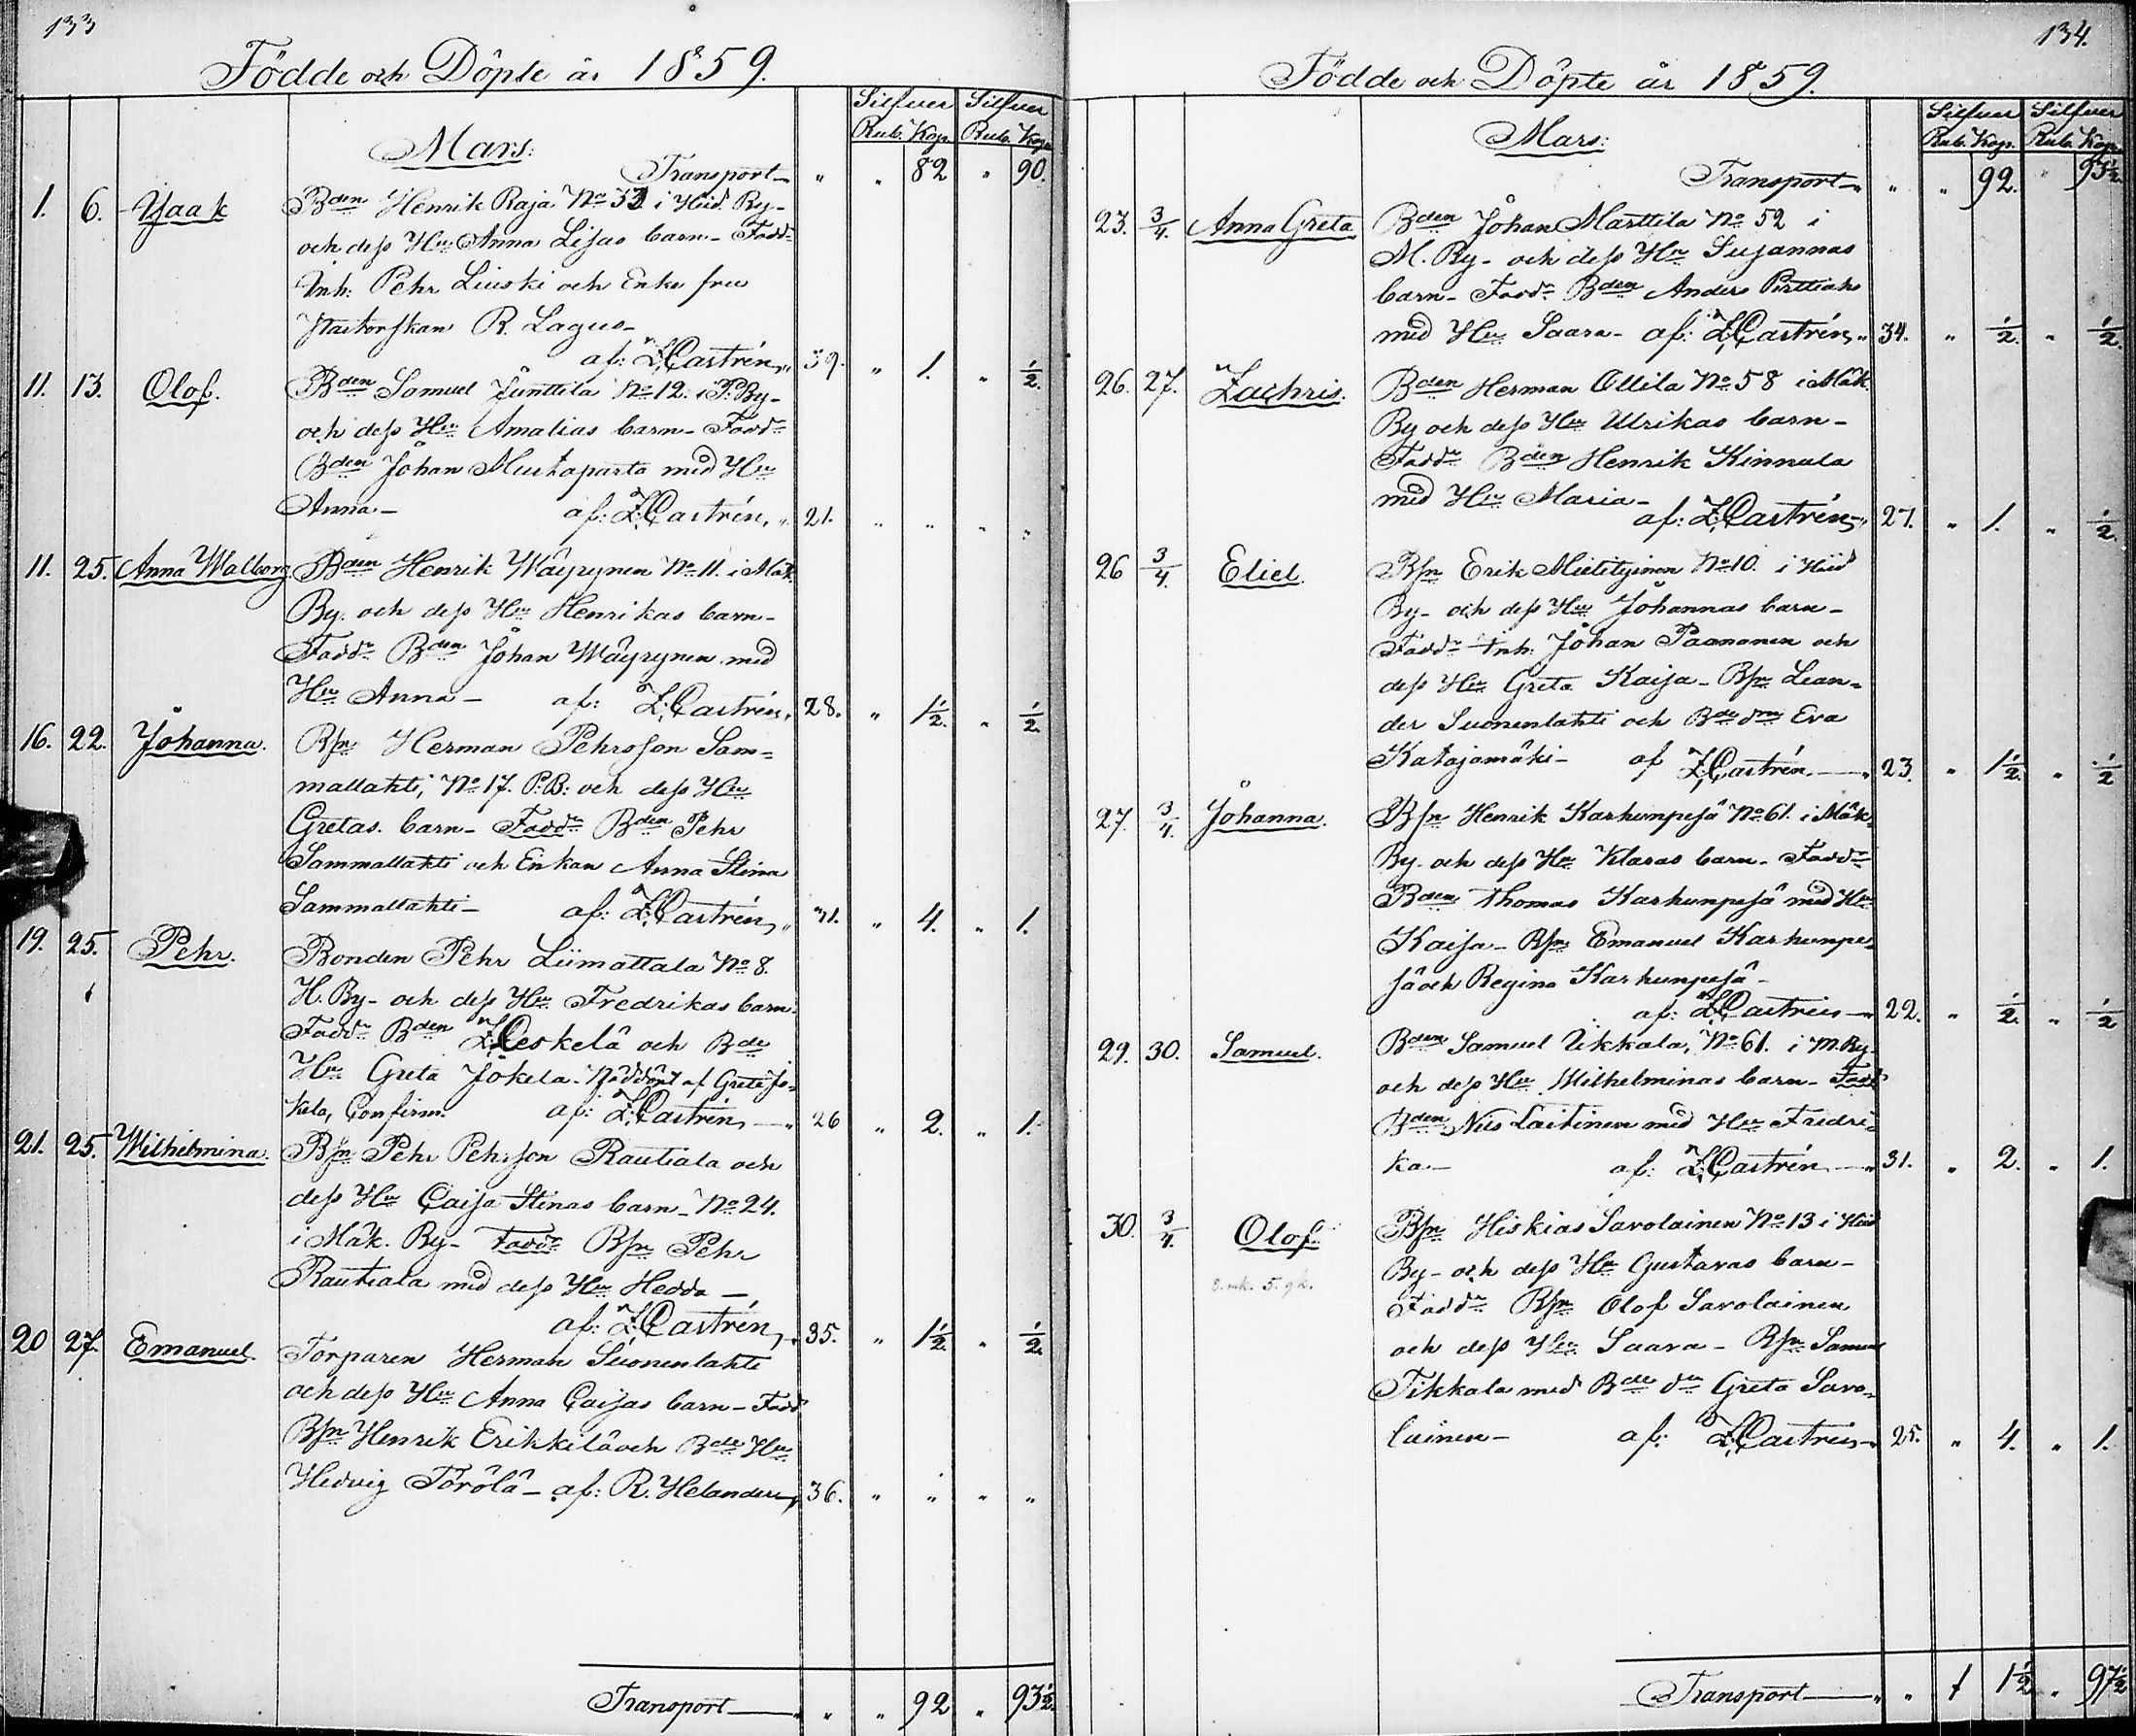 133
Födde och Döpte år 1859.
Silfver Silfver
Rub. Kop. Rub. Kop.
Mars:
Transport " " 82 " 90.
1. 6. Isaak Bden Henrik Raja No 33 i Heid. By-
och dess Hu Anna Lisas barn- Faddr
Inh: Pehr Liuski och Enke fru
R. Lagus-
af: Z. Castrén, " 39. " 1. " ½.
11. 13. Olof. Bden Samuel Junttila No 12. i P. By-
och dess Hu Amalias barn- Faddr
Bden Johan Mustaparta med Hu
Anna.- af: Z. Castrén. " 21. " " " "
11. 25. Anna Walborg. Bden Henrik Wäyrynen No 11. i Mäk.
By. och dess Hu Henrikas barn-
Faddr Bden Johan Wäyrynen med
Hu Anna- af: Z. Castrén, 28. " 1½. " ½.
16. 22. Johanna. Bsn Herman Pehrsson Sam=
mallahti, No 17. P.B: och dess Hu
Gretas. barn- Faddr Bden Pehr
Sammallahti och Enkan Anna Stina
Sammallahti- af: Z. Castrén, " 31. " 4. " 1.
19. 25. Pehr. Bonden Pehr Liimattala No 8.
H. By- och dess Hu Fredrikas barn.
Faddr Bden Z. Leskelä och Bde
Hu Greta Jokela. Nöddöpt af Greta Jo=
kela, Confirm. af: Z. Castrén " 26 " 2. " 1.
21. 25. Wilhelmina. Bsn Pehr Pehrsson Rautiala och
dess Hu Caisa Stinas barn- No 24.
i Mäk. By- Faddr Bsn Pehr
Rautiala med dess Hu Hedda-
af: Z. Castrén, " 35. " 1½. " ½.
20 27. Emanuel. Torparen Herman Suonenlahti
och dess Hu Anna Caisas barn- Fadd
Bsn Henrik Erikkilä och Bde Hu
Hedvig Törölä- af: R. Helander, 36. " " " "
Transport " " " 92 " 93½.
134.
Födde och Döpte år 1859.
Silfver Silfver
Rub. Kop. Rub. Kop.
Mars:
Transport " " " 92. 93½.
23. 3/4. Anna Greta Bden Johan Marttila No 52 i
M. By- och dess Hu Susannas
barn- Faddr Bden Anders
med Hu Saara- af: Z. Castrén, " 34. " ½. " ½.
26. 27. Zachris. Bden Herman Ollila No 58 i Mäk.
By och dess Hu Ulrikas barn-
Faddr Bden Henrik Kinnula
med Hu Maria-
af: Z. Castrén, " 27. " 1. " ½.
26 3/4. Eliel. Bsn Erik Mietityinen No 10. i Heid
By- och dess Hu Johannas barn-
Faddr Inh: Johan Paananen och
dess Hu Greta Kaisa- Bsn Lean=
der Suonenlahti och Bde dtr Eva
Katajamäki- af Z. Castrén. " 23. " 1½. " ½
27. 3/4. Johanna. Bsn Henrik Karhunpesä No 61. i Mäk.
By. och dess Hu Klaras barn- Faddr
Bden Thomas Karhunpesä med Hu
Kaisa- Bsn Emanuel Karhunpe=
sä och Regina Karhunpesä-
af: Z. Castrén " 22. " ½. " ½
29. 30. Samuel. Bden Samuel Ukkala, No 61. i M. By-
och dess Hu Wilhelminas barn- Fadd
Bden Nils Laitinen med Hu Fredri=
ka- af: Z. Castrén " 31. " 2. " 1.
30. 3/4. Olof. Bsn Hiskias Savolainen No 13 i Heid
By- och dess Hu Gustavas barn-
Faddr Bsn Olof Savolainen
och dess Hu Saara- Bsn Samuel
Tikkala med Bde dtr Greta Savo=
lainen- af: Z. Castrén " 25. " 4. " 1.
Transport " " 1 1½ " 97½